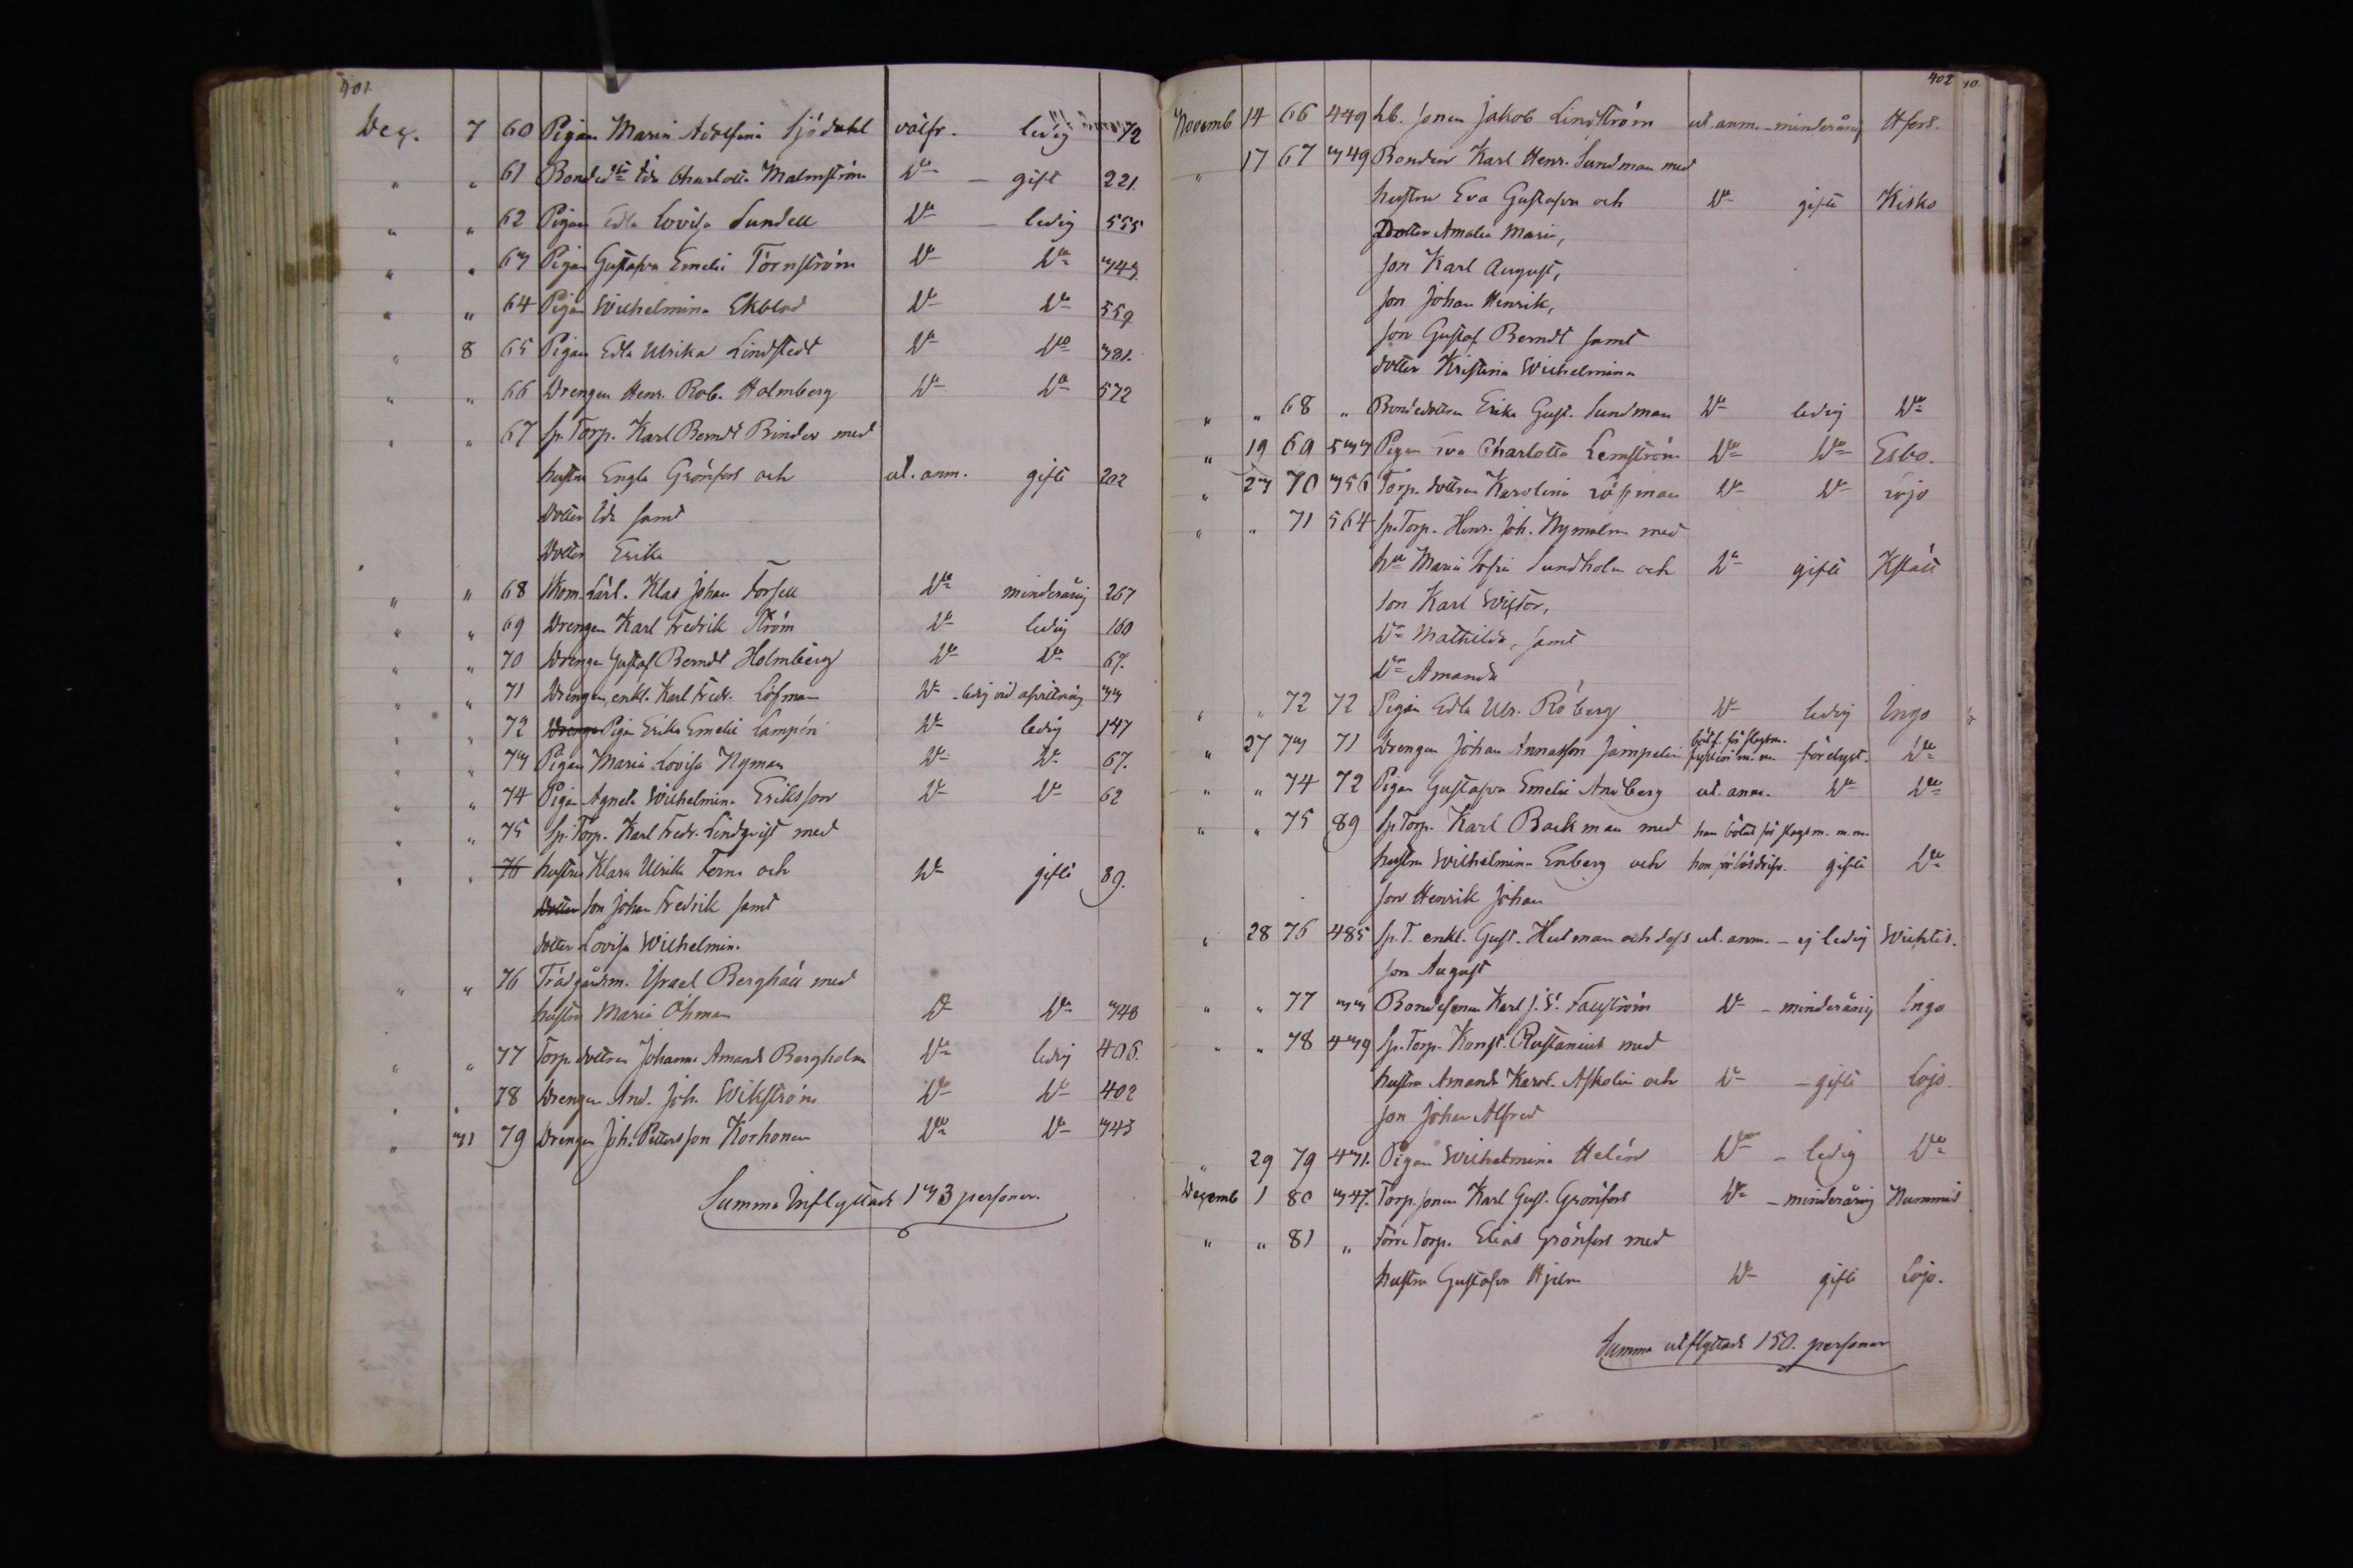 401.
Dec. 7 60 Pigan Maria Adolfina Sjödahl välfr. ledig 72
" " 61 Bonded:tr Ida Charlotta Malmström D:o – gift 221.
" " 62 Pigan Edla Lovisa Sundell D:o – ledig 555
" " 63 Pigan Gustafva Emelie Törnström D:o D:o 343.
" " 64 Pigan Wilhelmina Ekblad D:o D:o 559
" 8 65 Pigan Edla Ulrika Lindstedt D:o D:o 381.
" " 66 Drengen Henr. Rob. Holmberg D:o D:o 572
" " 67 Sp. Torp. Karl Berndt Binder med
hustru Engla Grönfors och ut. anm. gifte 202
Dotter Ida samt
Dotter Erika
" " 68 Skom. Lärl. Klas Johan Forsell D:o minderårig 267
" " 69 Drengen Karl Fredrik Ström D:o ledig 160
" " 70 Drengen Gustaf Berndt Holmberg D:o D:o 67.
" " 71 Drengen, enkl. Karl Fredr. Löfman D:o – ledig vid 33
" " 72 Drengen Pigan Erika Emelie Lampén D:o ledig 147
" " 73 Pigan Maria Lovisa Nyman D:o D:o 67.
" " 74 Pigan Agneta Wilhelmina Eriksson D:o D:o 62
" " 75 Sp. Torp. Karl Fredr. Lindqvist med
" " 76 hustru Klara Ulrika Ferns och D:o gifte 89.
Dotter Son Johan Fredrik samt
dotter Lovisa Wilhelmina
" " 76 Trädgårdsm. Israel Berghäll med
hustru Maria Öhman D:o D:o 340
" " 77 Torp. dottren Johanna Amanda Bergholm D:o ledig 406.
" " 78 Drengen And. Joh. Wikström D:o D:o 402
" 31 79 Drengen Joh. Pettersson Korhonen D:o D:o 343
Summa Inflyttade 133 personer.
402
Novemb 14 66 449 Lb. sonen Jakob Lindström ut. anm. – minderårig Hfors.
" 17 67 349 Bonden Karl Henr. Sundman med
hustru Eva Gustafva och D:o gifte Kisko
Dotter Amalia Maria,
Son Karl August,
Son Johan Henrik,
Son Gustaf Berndt samt
dotter Kristina Wilhelmina
" " 68 " Bondedottren Erika Gust. Sundman D:o ledig D:o
" 19 69 533 Pigan Eva Charlotta Lemström D:o D:o Esbo.
" 23 70 356 Torp. dottren Karolina Löfman D:o D:o Lojo
" " 71 564 Sp. Torp. Henr. Joh. Nymalm med
h:u Maria Sofia Sundholm och D:o gifte Kslätt
Son Karl Victor,
D:r Mathilda, samt
D:r Amanda
" " 72 72 Pigan Edla Ulr. Röberg D:o ledig Ingo
" 27 73 71 Drengen Johan Annasson Jampelin bötf. för slagsm. fylleri m. m. D:o
" " 74 72 Pigan Gustafva Emelie Andberg ut. anm. D:o D:o
" " 75 89 Sp. Torp. Karl Backman med han bötat för slagsm. m. m.
hustru Wilhelmina Enberg och hon för lösdrif. gifte D:o
Son Henrik Johan
" 28 76 485 Sp. T. enkl. Gust. Hutman och dess ut. anm. – ej ledig Wichtis.
Son August
" " 77 33 Bondesonen Karl J. W. Fallström D:o – minderårig Ingo
" " 78 439 Sp. Torp. Konst. Rustanius med
hustru Amanda Karol. Askolin och D:o – gifte Lojo
Son Johan Alfred
" 29 79 431. Pigan Wilhelmina Helén D:o – ledig D:o
Decemb 1 80 347. Torp. sonen Karl Gust. Grönfors D:o – minderårig Nummis
" " 81 " Förre Torp. Elias Grönfors med
hustru Gustafva Hjelm D:o gifte Lojo.
Summa utflyttade 150. personer